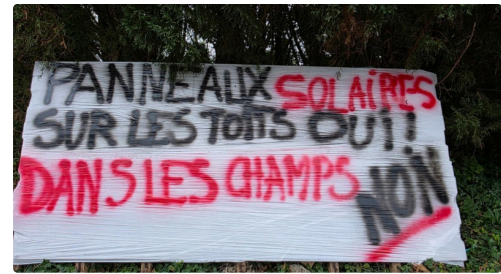 PANNEAUX SOLAIRES
SUR LES TOITS OUI!
DANS LES CHAMPS NON